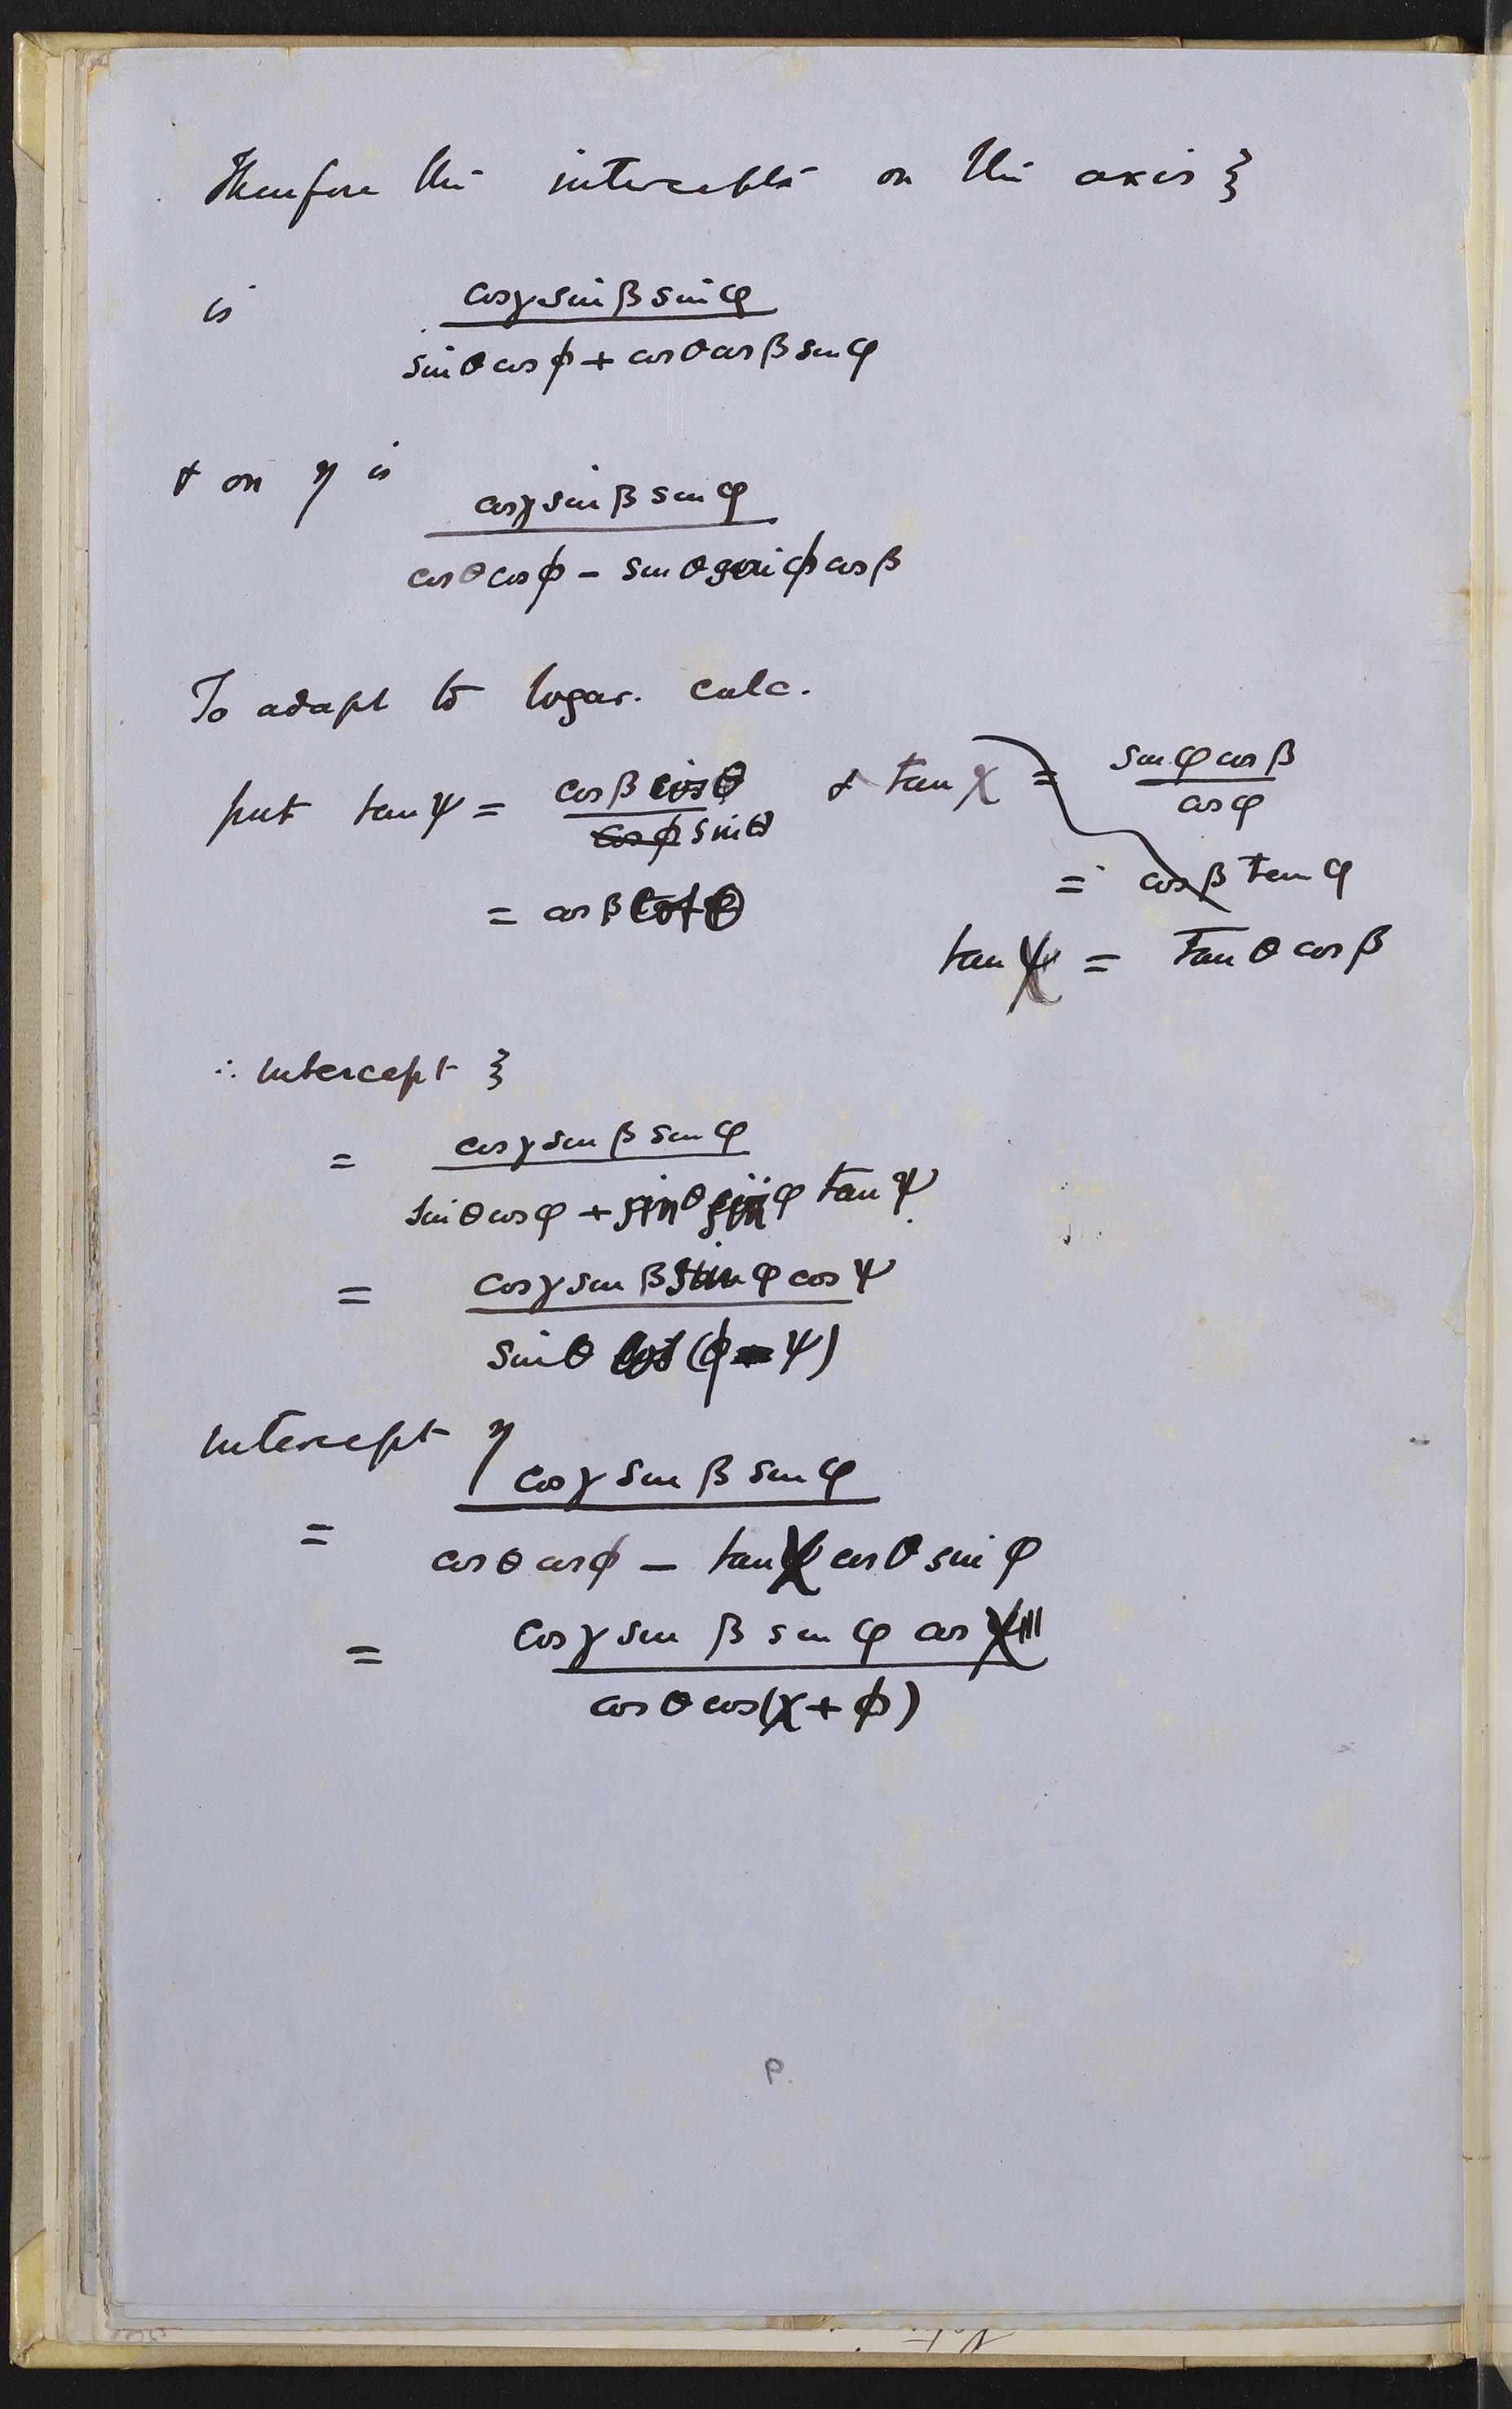 Therefore the intercepts on the axis ξ
is cosγ sin β sin φ
sin θ cos φ + cos θ cos β sin φ
& on η is
cosγ sin β sin φ
cos θ cos φ – sin θ sin φ cos β
To adapt to logar. calc.
put tan ψ = cos β cos θ / cos φ sin θ & tan χ = sin φ cos β / cos φ
= cos β cot θ = cos β tan φ
tan χ = tan θ cos β
∴ intercept ξ
= cos γ sin β sin φ
sin θ cos φ + sin θ sin φ tan ψ
= cos γ sin β sin φ cos ψ
sin θ cos (φ – ψ)
intercept η
= cos γ sin β sin φ
cos θ cos φ – tan χ cos θ sin φ
= cos γ sin β sin φ cos χ
cos θ cos (χ + φ)
P.